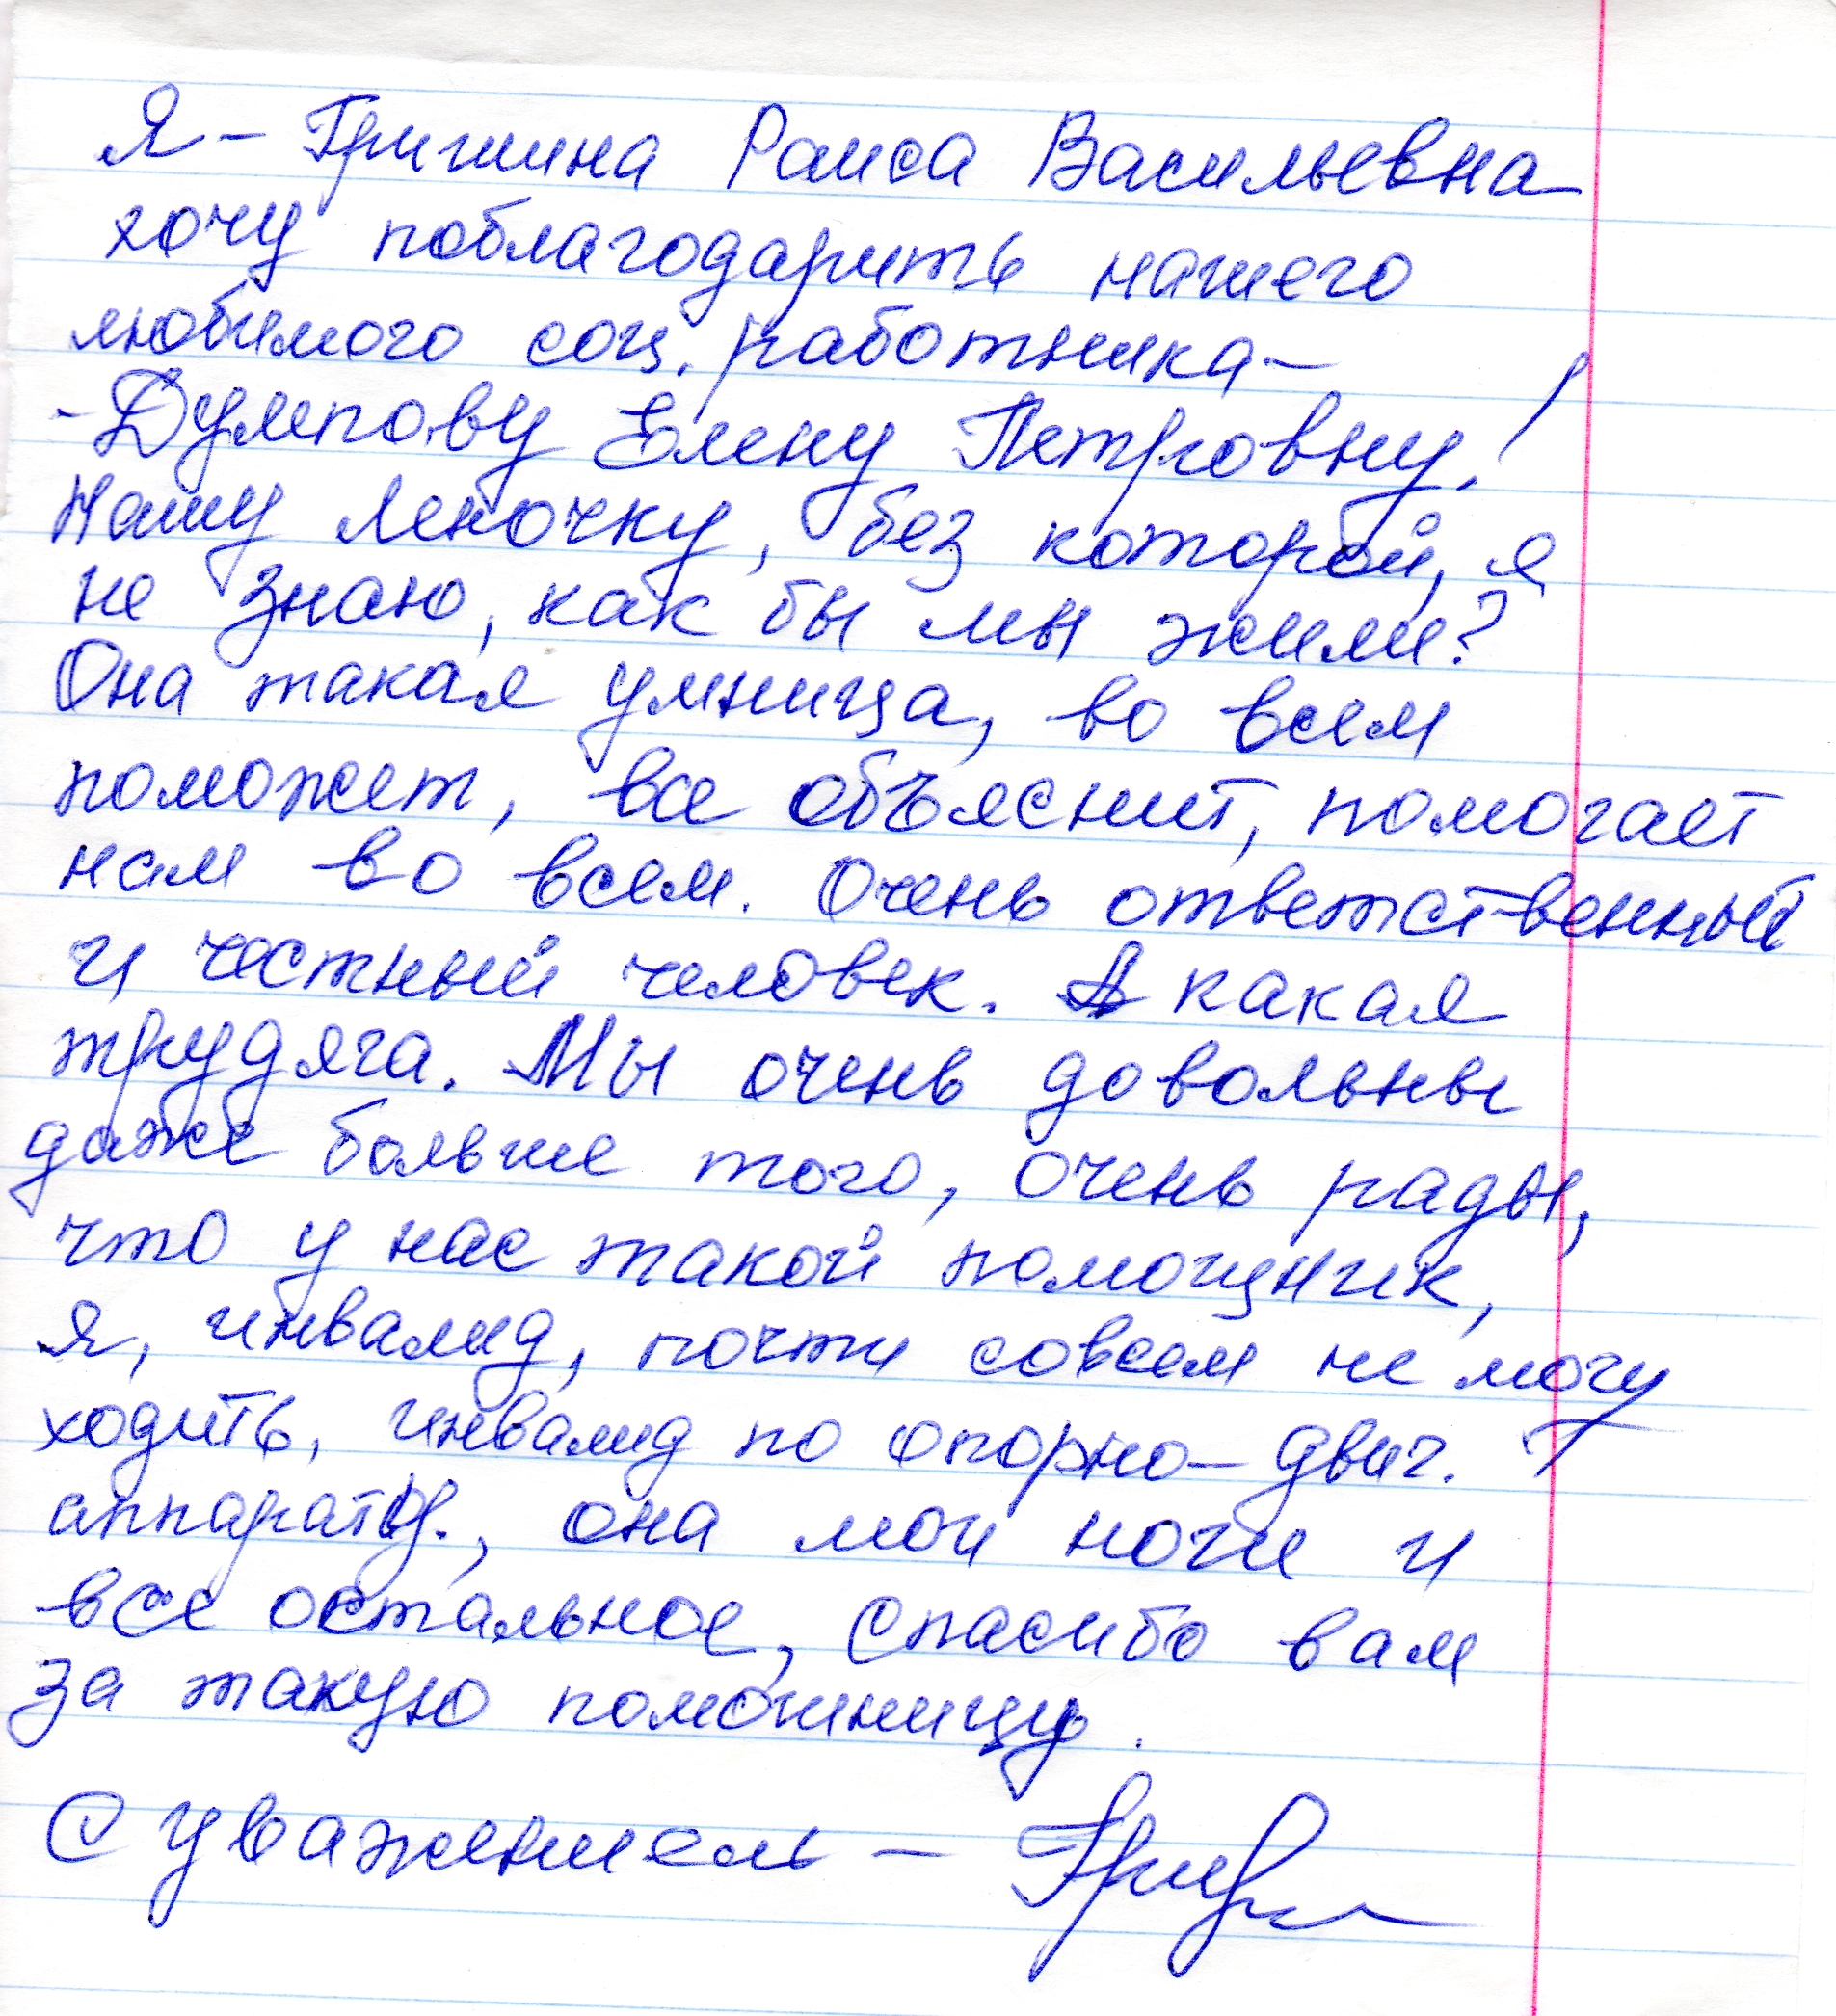 Я – Гришина Раиса Васильевна
хочу поблагодарить нашего
любимого соц. работника –
- Думпову Елену Петровну!
Нашу Леночку, без которой, я
не знаю, как бы мы жили?
Она такая умница, во всем
поможет, все объяснит, помогает
нам во всем. Очень ответственный
и честный человек. А какая
трудяга. Мы очень довольны
даже больше того, очень рады,
что у нас такой помощник,
я, инвалид, почти совсем не могу
ходить, инвалид по опорно – двиг.
аппарату., она мои ноги и
все остальное, спасибо вам
за такую помошницу.
С уважением –